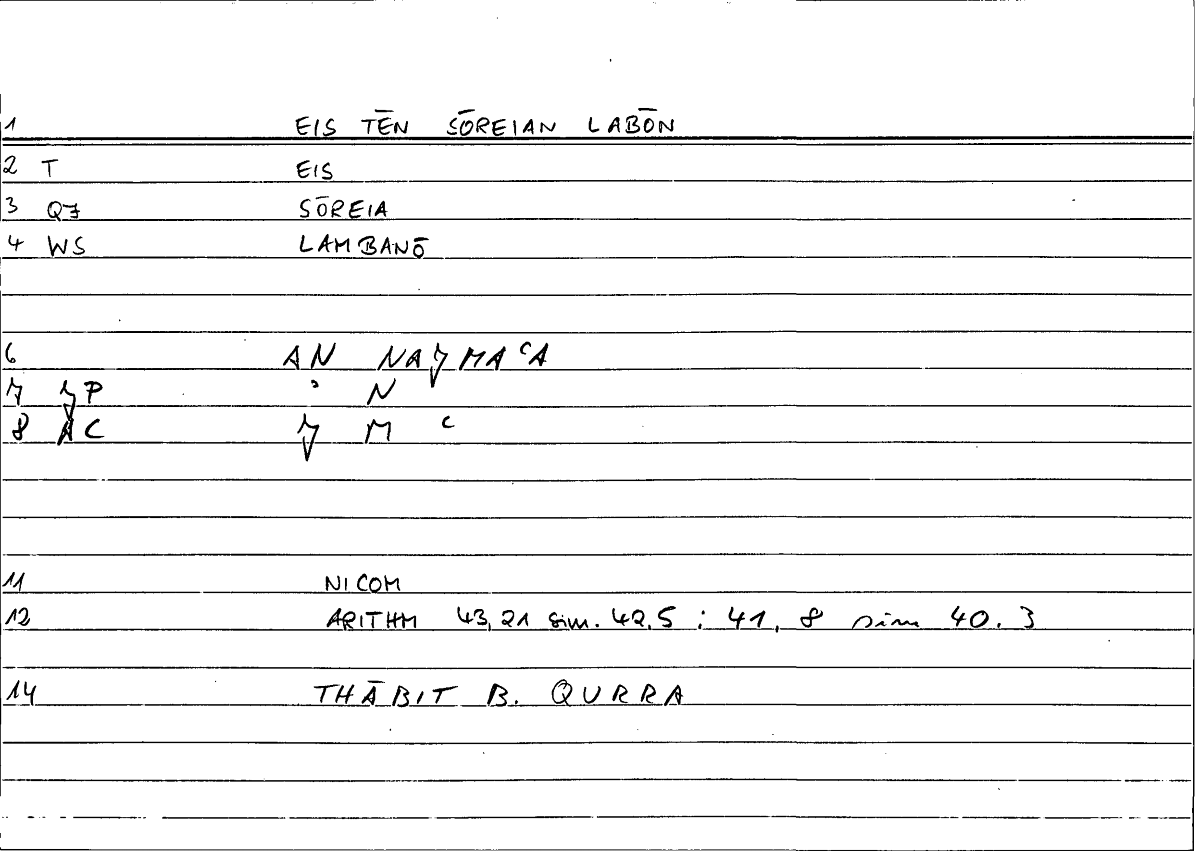 1 EIS TĒN SŌREIAN LABŌN
2 T EIS
3 QJ SŌREIA
4 WS LAMBANŌ
6 AN NAJMAʿA
7 JP ʾ N
8 AC J M ʿ
11 NICOM
12 ARITHM 43,21 sim. 42,5 ; 41, 8 sim 40. 3
14 THĀBIT B. QURRA